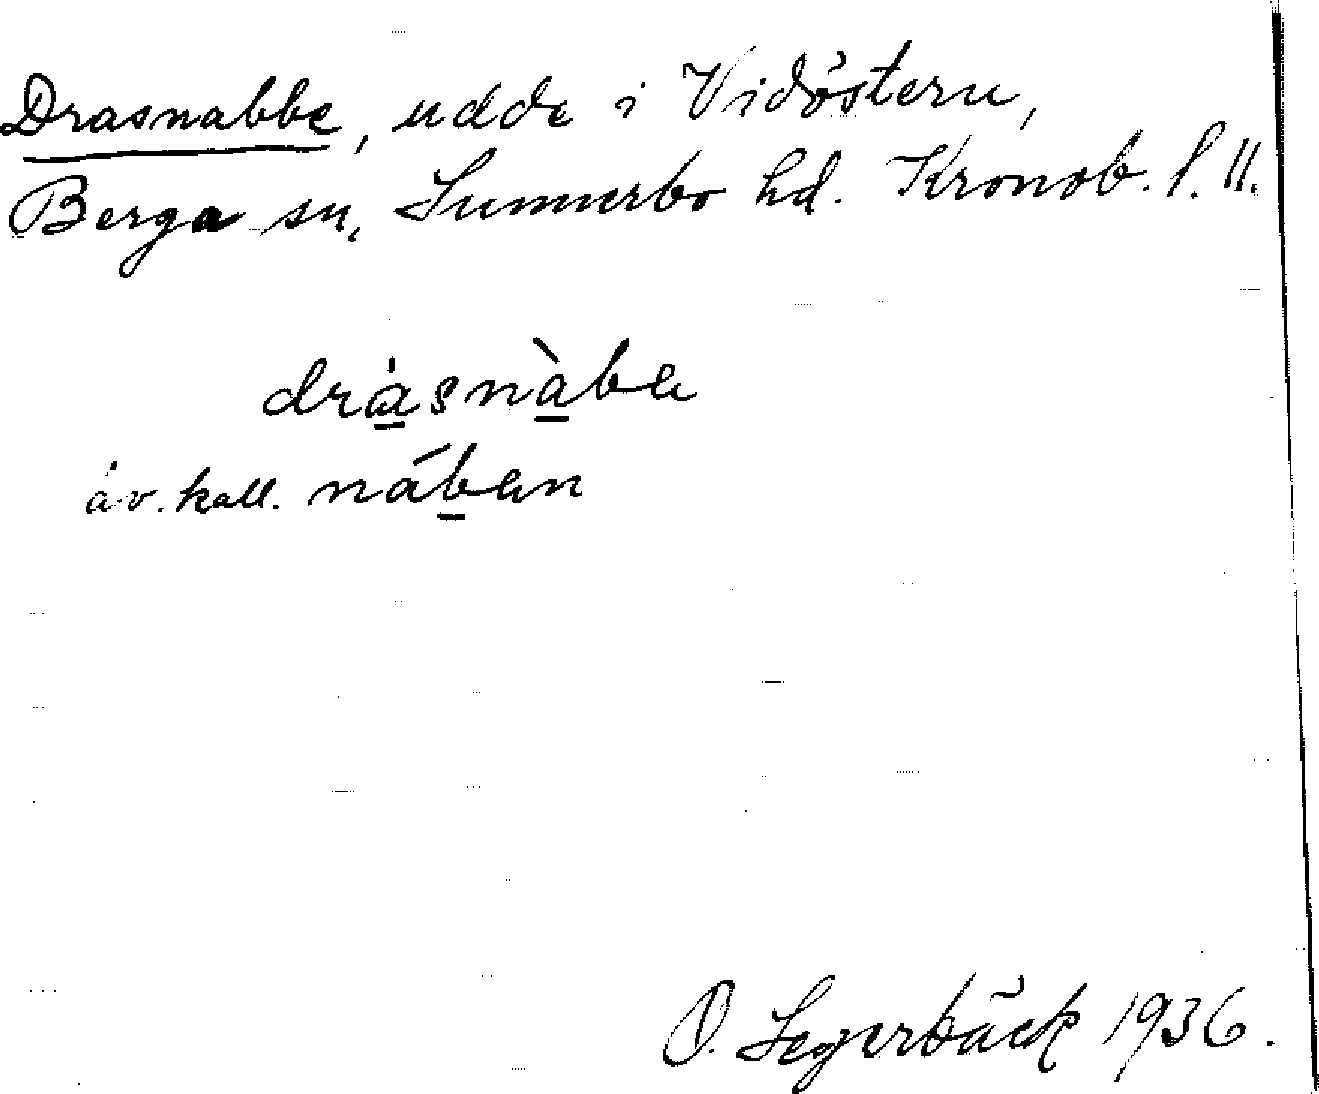 Drasnabbe, udde i Vidöstern,
Berga sn, Sunnerbo hd. Kronob. l. 11.
drásnàba
äv. kall. nában
O. Segerbäck 1936.